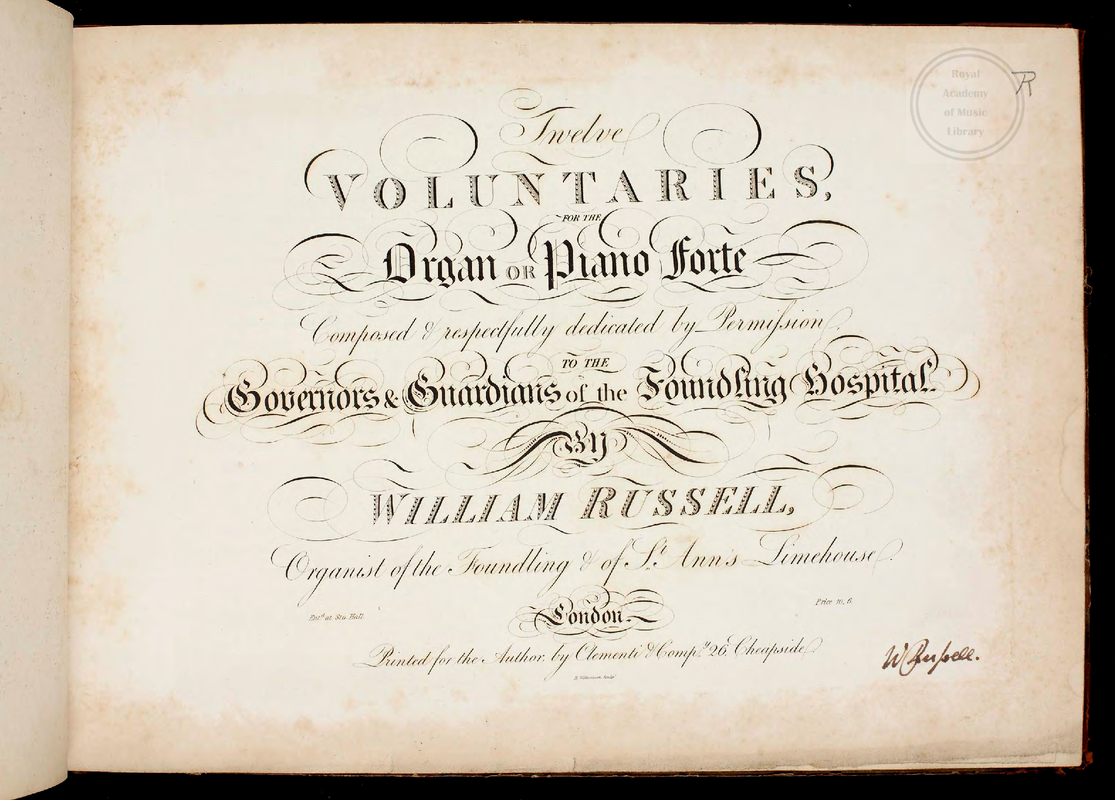 Royal
Academy
of Music
Library
R
Twelve
VOLUNTARIES,
FOR THE
Organ OR Piano Forte
Composed & respectfully dedicated by Permiſsion
TO THE
Governors & Guardians of the Foundling Hospital.
By
WILLIAM RUSSELL,
Organist of the Foundling & of St. Ann's Limehouse.
Entd. at Sta. Hall
London.
Price 10,,6.
Printed for the Author, by Clementi & Compy. 26, Cheapside
W Ruſsell.